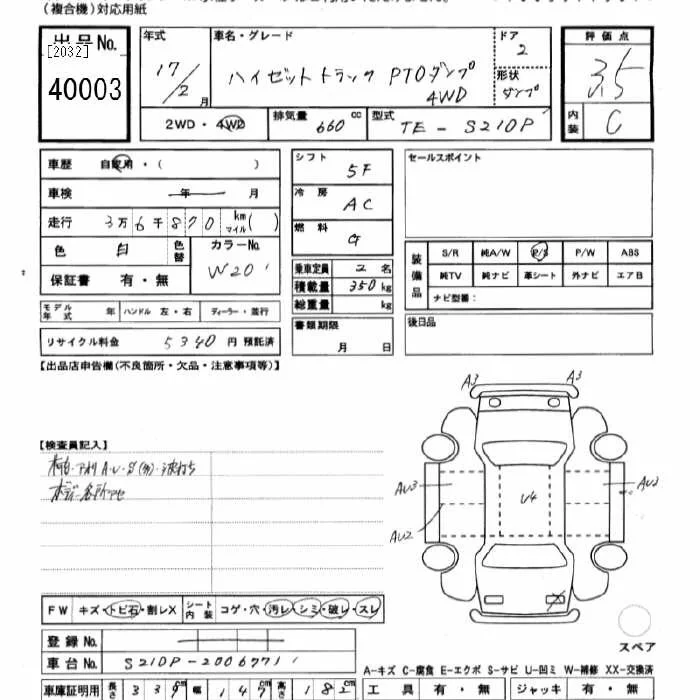 (複合機)対応用紙
出品No.
[2032]
40003
年式
17/2月
車名・グレード
ハイゼットトラック PTOダンプ
4WD
ドア
2
形状
ダンプ
評価点
3.5
内装
C
2WD・4WD
排気量 660 cc
型式 TE-S210P
車歴 自家用・( )
車検 年 月
走行 3万6千870 km マイル( )
色 白 色替
カラーNo.
W20
保証書 有・無
モデル年式 年 ハンドル 左・右 ディーラー・並行
リサイクル料金 5340 円 預託済
シフト
5F
冷房
AC
燃料
G
乗車定員 2 名
積載量 350 kg
総重量 kg
書類期限
月 日
セールスポイント
装備品
S/R 純A/W P/S P/W ABS
純TV 純ナビ 革シート 外ナビ エアB
ナビ型番:
後日品
【出品店申告欄(不良箇所・欠品・注意事項等)】
【検査員記入】
A3
A3
AU3
AU2
U4
X
FW キズ・トビ石・割レX
シート内装 コゲ・穴・汚レ・シミ・破レ・スレ
登録No.
車台No. S210P-2006771
スペア
A-キズ C-腐食 E-エクボ S-サビ U-凹ミ W-補修 XX-交換済
車庫証明用 長さ 339 cm 幅 147 cm 高さ 182 cm
工具 有・無 ジャッキ 有・無